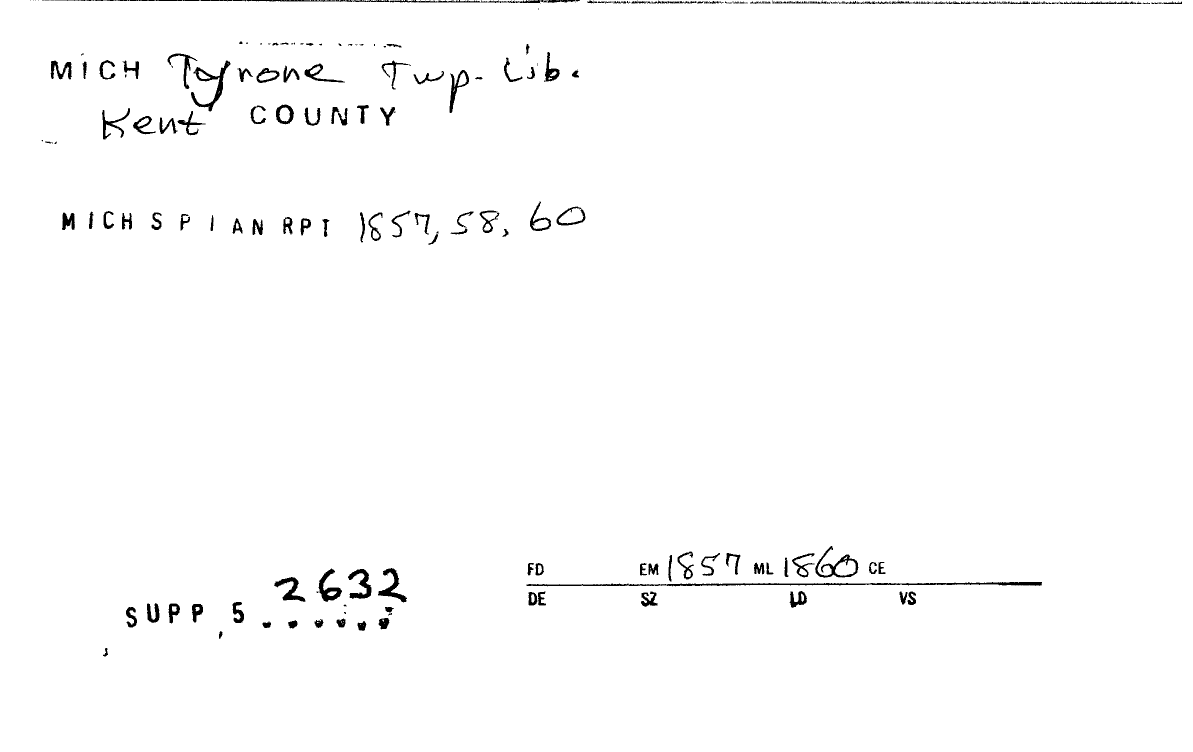 MICH Tyrone Twp. Lib.
Kent COUNTY
MICH S P I AN RPT 1857, 58, 60
2632
SUPP, 5 . . . . . .
FD EM 1857 ML 1860 CE
DE SZ LD VS